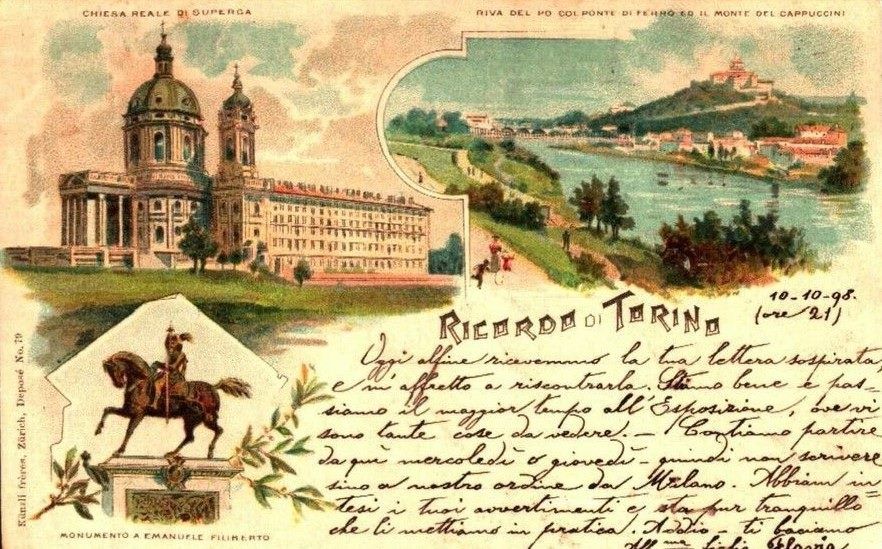 CHIESA REALE DI SUPERGA
RIVA DEL PO COL PONTE DI FERRO ED IL MONTE DEI CAPPUCCINI
RICORDO DI TORINO
10-10-98.
(ore 21)
Oggi alfine ricevemmo la tua lettera sospirata,
e m'affretto a riscontrarla. Stiamo bene e pas-
siamo il maggior tempo all'Esposizione, ove vi
sono tante cose da vedere. — Contiamo partire
da quì mercoledì o giovedì - quindi non scrivere
sino a nostro ordine da Milano. Abbiam in
tesi i tuoi avvertimenti e sta pur tranquillo
che li mettiamo in pratica. Addio - ti baciamo
Flavia
MONUMENTO A EMANUELE FILIBERTO
Künzli frères, Zürich, Deposé No. 79